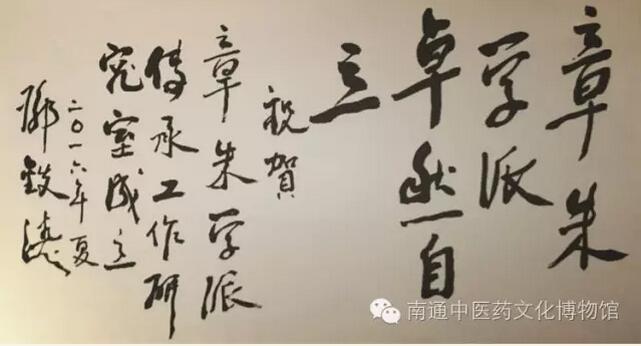 章朱
学派
卓然自
立
祝賀
章朱学派
传承工作研
究室成立
二〇一六年夏
邓铁涛
南通中医药文化博物馆